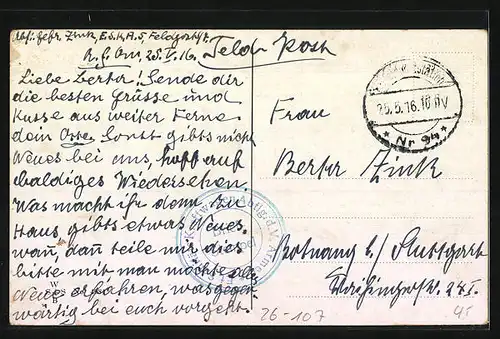 Abs: Gefr. Zink,
den 25. V. 16. Feld-Post
Liebe Berta! Sende dir
die besten Grüsse und
Küsse aus weiter Ferne
dein Sonst gibts nicht
Neues bei uns, hoff auf
baldiges Wiedersehen.
Was macht ihr denn zu
Haus gibts etwas Neues.
wan, dan teile mir dies
bitte mit man möchte alles
Neues erfahren, was gegen
wärtig bei euch vorgeht.
25.5.16. 10
* Nr 94 *
Frau
Berta Zink
Botnang b/ Stuttgart
26-107